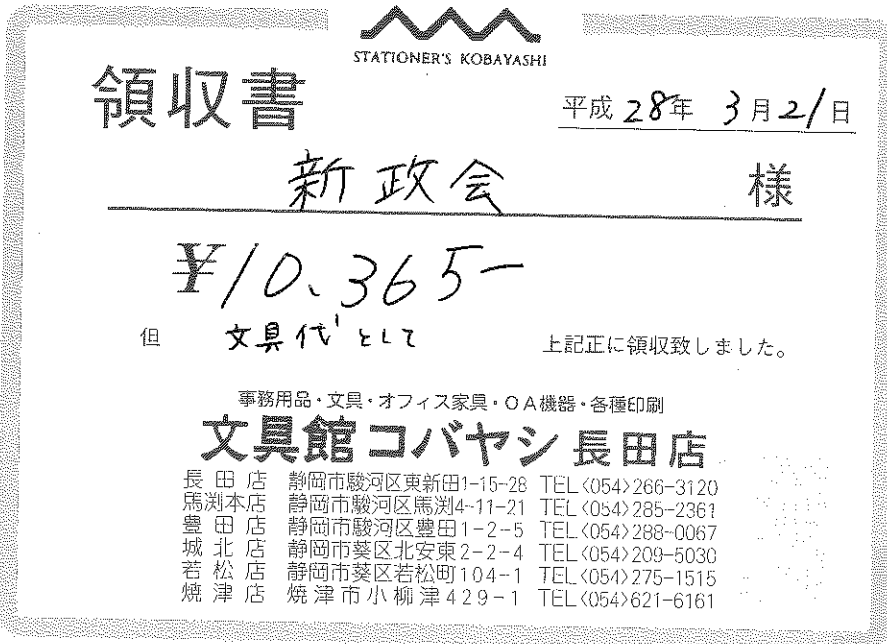 STATIONER'S KOBAYASHI
領収書
平成28年 3月21日
新政会 様
¥10,365-
但 文具代として 上記正に領収致しました。
事務用品・文具・オフィス家具・OA機器・各種印刷
文具館コバヤシ 長田店
長田店 静岡市駿河区東新田1-15-28 TEL<054>266-3120
馬渕本店 静岡市駿河区馬渕4-11-21 TEL<054>285-2361
豊田店 静岡市駿河区豊田1-2-5 TEL<054>288-0067
城北店 静岡市葵区北安東2-2-4 TEL<054>209-5030
若松店 静岡市葵区若松町104-1 TEL<054>275-1515
焼津店 焼津市小柳津429-1 TEL<054>621-6161